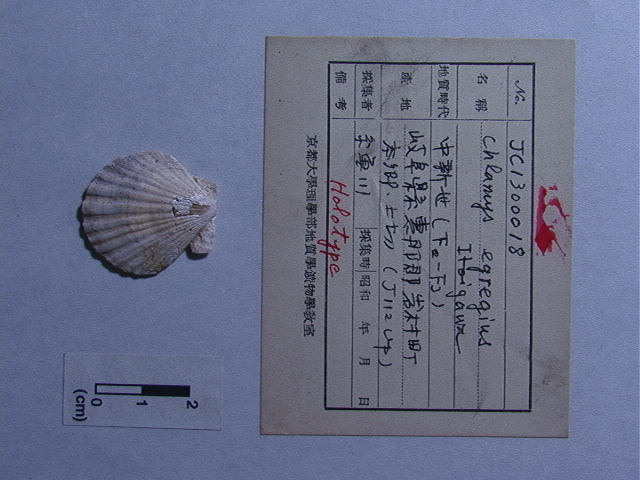 No. JC1300018
名稱 Chlamys egregius
Itoigawa
地質時代 中新世 (F2-F3)
産地 岐阜県恵那郡岩村町
本郷 (J112 up)
採集者 糸魚川 採集時 昭和 年 月 日
備考 Holotype
京都大學理學部地質學鑛物學教室
0 1 2
(cm)